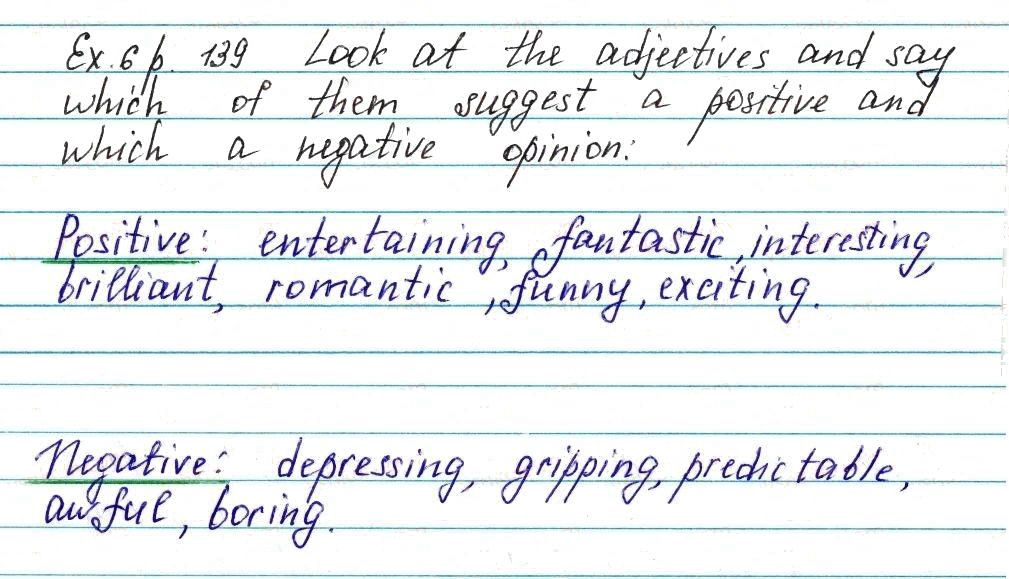 Ex. 6 p. 139 Look at the adjectives and say
which of them suggest a positive and
which a negative opinion:
Positive: entertaining, fantastic, interesting,
brilliant, romantic, funny, exciting.
Negative: depressing, gripping, predictable,
awful, boring.